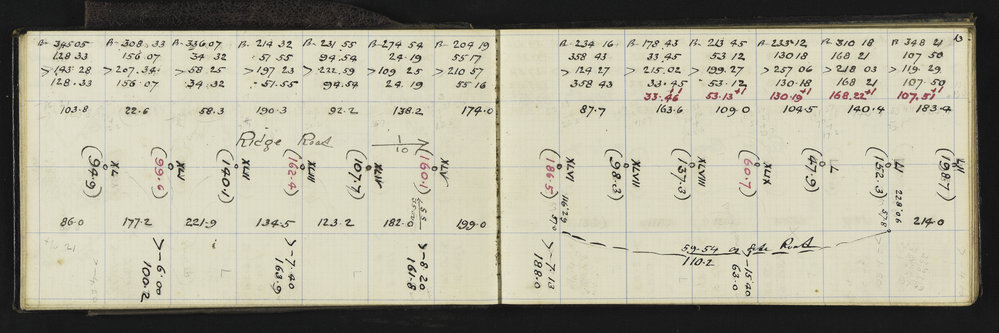 B- 345 05 B- 308 33 B- 336.07 B- 214 32 B- 231 55 B- 274 54 B- 204 19
128 33 156 07 34 32 57 55 94.54 24.19 55 17
>143 28 >207.34 >58 25 >197 23 >222.59 >109 25 >210 57
128.33 156.07 34.32 57.55 94.54 24.19 55 16
103.8 22.6 58.3 190.3 92.2 138.2 174.0
Ridge Road 1/10
XL XLI XLII XLIII XLIV XLV
(94.9) (99.6) (140.1) (162.4) (107.7) (160.1)
86.0 177.2 221.9 134.5 123.2 182.0 199.0
>-6.00 >-7.40 >-8 20
100.2 163.9 161.8
13
B- 234 16 B- 178.43 B- 213 45 B- 233.12 B- 310 18 B- 348 21
358 43 33.45 53 12 130.18 168 21 107 50
>124 27 >215.02 >199.27 >257 06 >218 03 >119 29
358 43 33.45+1 53.12+1 130.18+1 168 21+1 107.50+1
33.46 53.13 130.19 168.22 107.51
87.7 163.6 109.0 104.5 140.4 183.4
XLVI XLVII XLVIII XLIX L LI LII
(186.5) (98.3) (137.3) (60.7) (47.9) (152.3) (198.7)
116 29 228 06
57.0 57.8 214.0
59.54 of fire Road
110.2
>-7.13 >-15.40
188.0 63.0